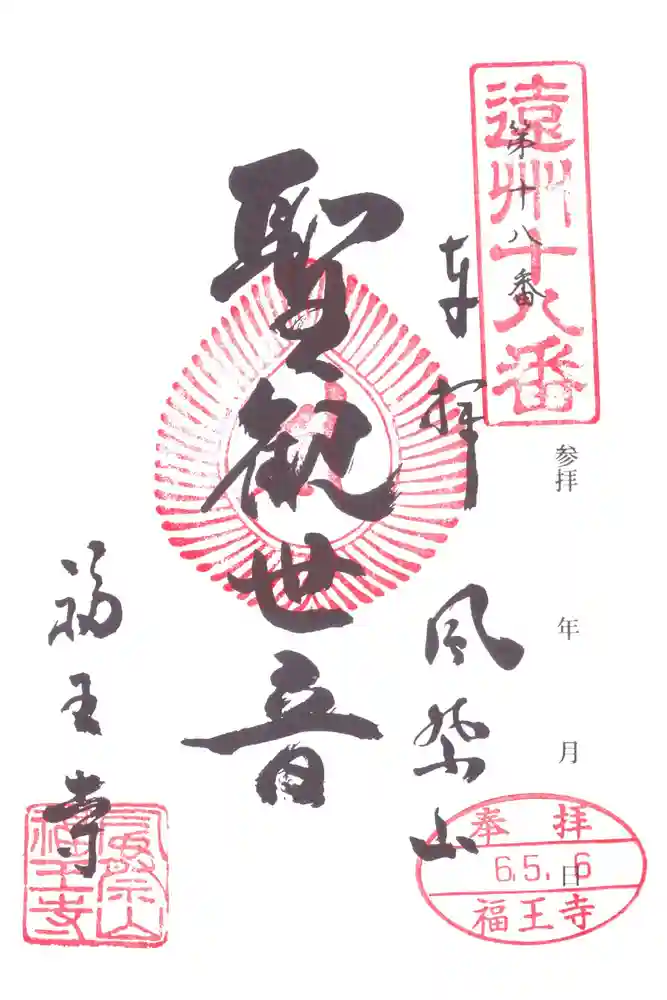 遠州十八番
第十八番
参拝 年 月 日
奉拝
風祭山
聖観世音
福王寺
奉拝
6.5.6
福王寺
風祭山
福王寺